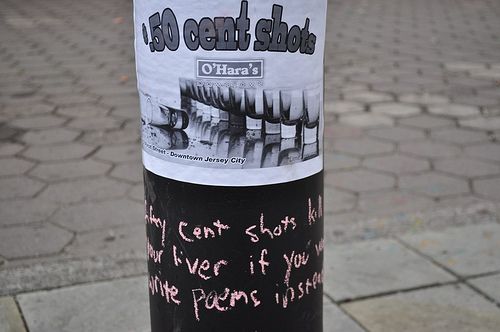 $.50 cent shots
O'Hara's
DOWNTOWN
Street - Downtown Jersey City
cent shots kill
your liver if you
write poems instead